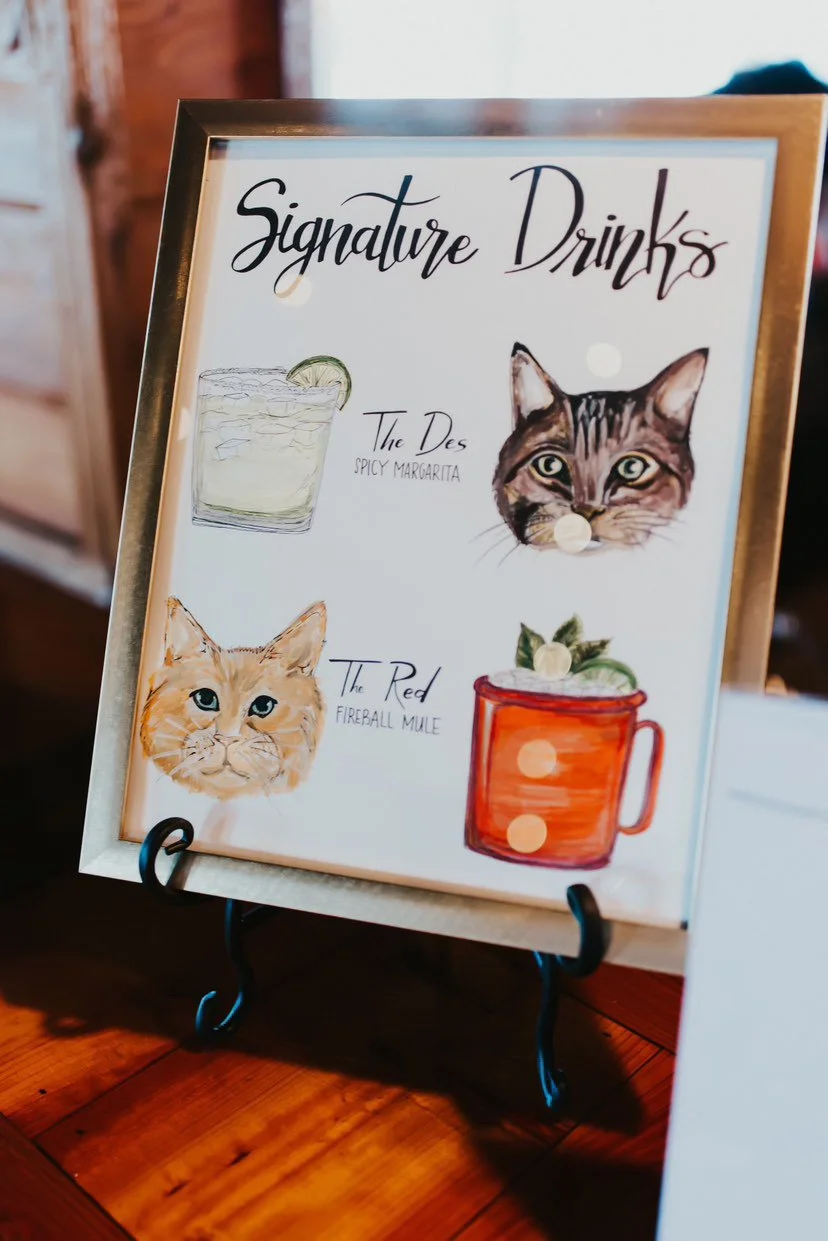 Signature Drinks
The Des
SPICY MARGARITA
The Red
FIREBALL MULE